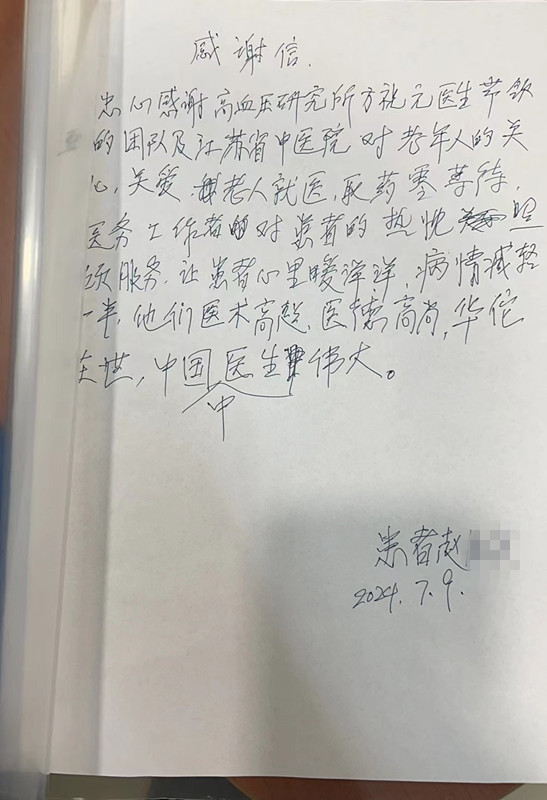 感谢信.
忠心感谢高血压研究所方祝元医生带领
的团队及江苏省中医院对老年人的关
心,关爱 老人就医,取药零等待,
医务工作者 对患者的热忱 照
顾服务.让患者心里暖洋洋,病情减轻
一半,他们医术高超,医德高尚,华佗
在世,中国中医生伟大。
患者赵
2024.7.9.